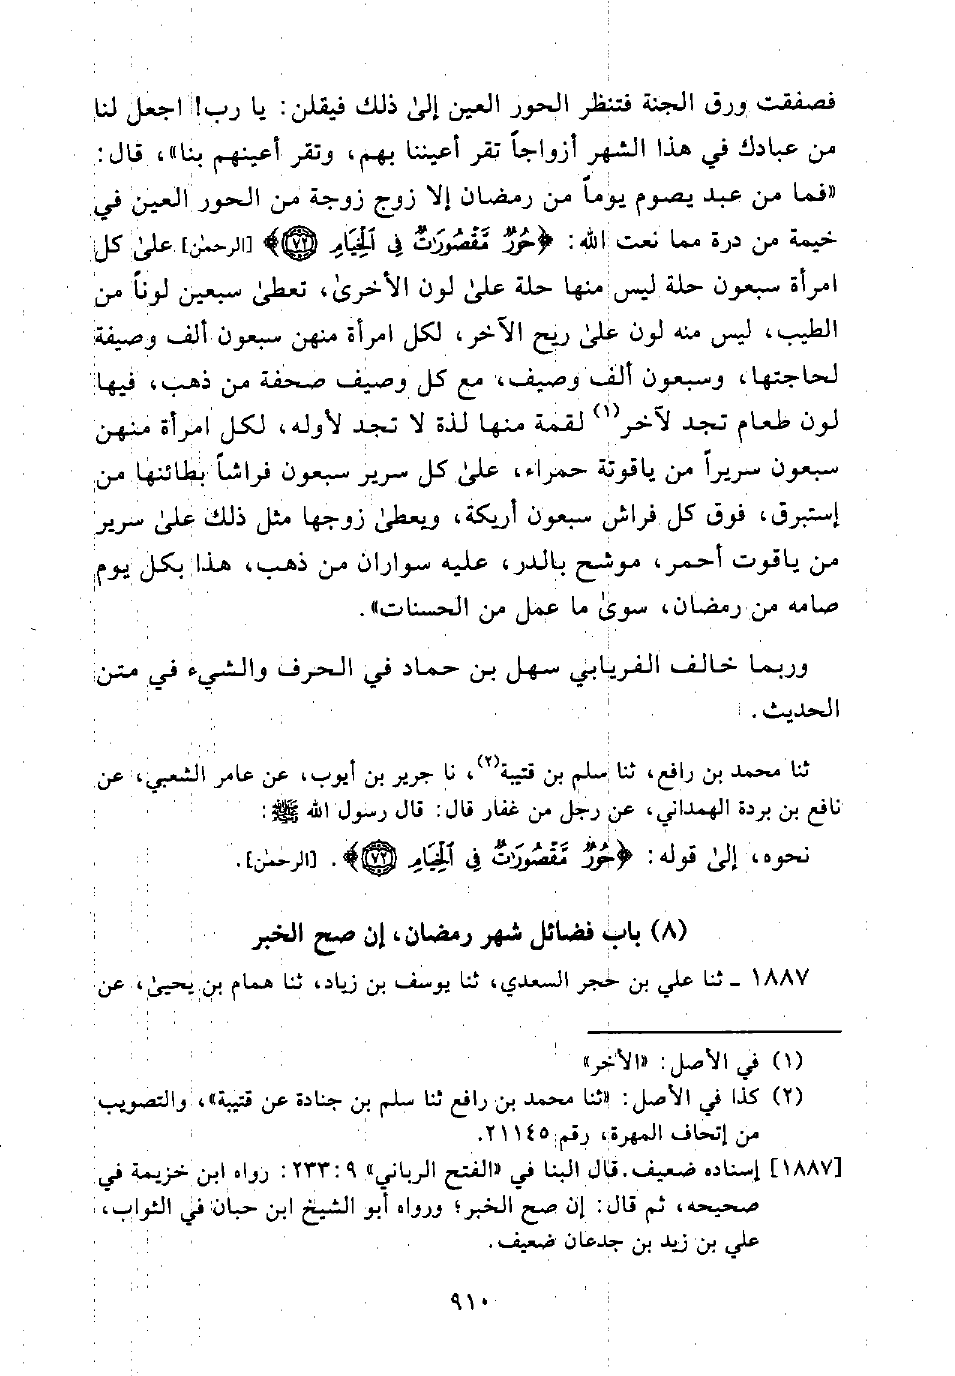 فصفقت ورق الجنة فتنظر الحور العين إلىٰ ذلك فيقلن: يا رب! اجعل لنا
من عبادك في هذا الشهر أزواجاً تقر أعيننا بهم، وتقر أعينهم بنا»، قال:
«فما من عبد يصوم يوماً من رمضان إلا زوج زوجة من الحور العين في
خيمة من درة مما نعت الله: ﴿حُورٌ مَّقْصُورَاتٌ فِي الْخِيَامِ ﴿٧٢﴾﴾ [الرحمٰن] علىٰ كل
امرأة سبعون حلة ليس منها حلة علىٰ لون الأخرىٰ، تعطىٰ سبعين لوناً من
الطيب، ليس منه لون علىٰ ريح الآخر، لكل امرأة منهن سبعون ألف وصيفة
لحاجتها، وسبعون ألف وصيف، مع كل وصيف صحفة من ذهب، فيها
لون طعام تجد لآخر(١) لقمة منها لذة لا تجد لأوله، لكل امرأة منهن
سبعون سريراً من ياقوتة حمراء، علىٰ كل سرير سبعون فراشاً بطائنها من
إستبرق، فوق كل فراش سبعون أريكة، ويعطىٰ زوجها مثل ذلك علىٰ سرير
من ياقوت أحمر، موشح بالدر، عليه سواران من ذهب، هذا بكل يوم
صامه من رمضان، سوىٰ ما عمل من الحسنات».
وربما خالف الفريابي سهل بن حماد في الحرف والشيء في متن
الحديث.
ثنا محمد بن رافع، ثنا سلم بن قتيبة(٢)، نا جرير بن أيوب، عن عامر الشعبي، عن
نافع بن بردة الهمداني، عن رجل من غفار قال: قال رسول الله ﷺ:
نحوه، إلىٰ قوله: ﴿حُورٌ مَّقْصُورَاتٌ فِي الْخِيَامِ ﴿٧٢﴾﴾. [الرحمٰن].
(٨) باب فضائل شهر رمضان، إن صح الخبر
١٨٨٧ ـ ثنا علي بن حجر السعدي، ثنا يوسف بن زياد، ثنا همام بن يحيىٰ، عن
(١) في الأصل: «الأخر»
(٢) كذا في الأصل: «ثنا محمد بن رافع ثنا سلم بن جنادة عن قتيبة»، والتصويب
من إتحاف المهرة، رقم ٢١١٤٥.
[١٨٨٧] إسناده ضعيف. قال البنا في «الفتح الرباني» ٩: ٢٣٣: رواه ابن خزيمة في
صحيحه، ثم قال: إن صح الخبر؛ ورواه أبو الشيخ ابن حبان في الثواب،
علي بن زيد بن جدعان ضعيف.
٩١٠